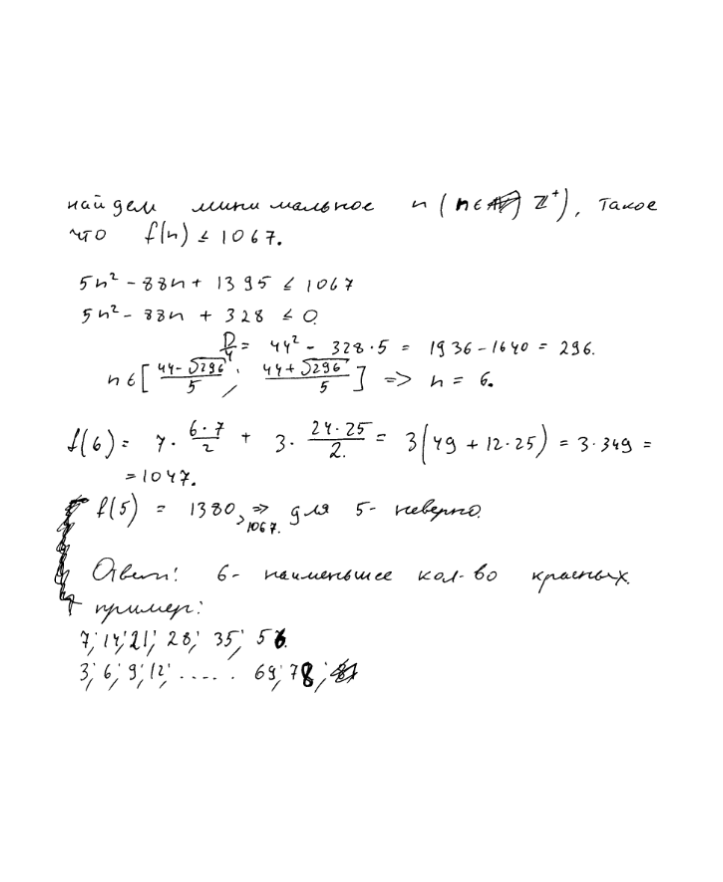 найдем минимальное n (n ∈ Z⁺), такое
что f(n) ≤ 1067.
5n² - 88n + 1395 ≤ 1067
5n² - 88n + 328 ≤ 0.
D/4 = 44² - 328·5 = 1936 - 1640 = 296.
n ∈ [ (44-√296)/5 ; (44+√296)/5 ] => n = 6.
f(6) = 7 · (6·7)/2 + 3 · (24·25)/2. = 3(49 + 12·25) = 3·349 =
= 1047.
f(5) = 1380 > 1067. => для 5 - неверно.
Ответ: 6 - наименьшее кол-во красных.
пример:
7; 14; 21; 28; 35; 56.
3; 6; 9; 12; ..... 69; 78;